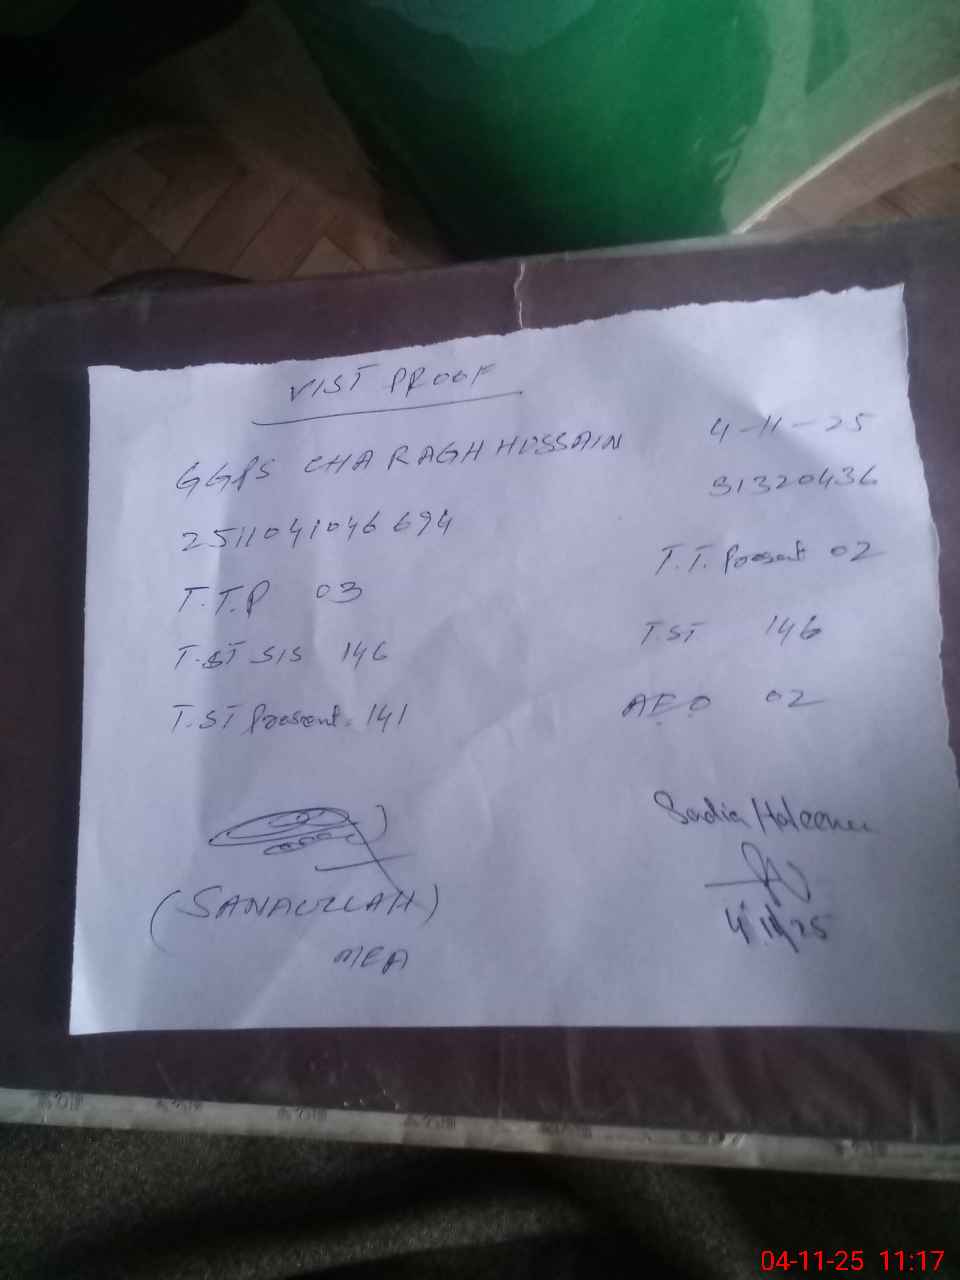 VIST PROOF
4-11-25
GGPS CHARAGH HUSSAIN
31320436
2511041046694
T.T.P 03
T.T. Present 02
T.ST SIS 146
TST 146
T.ST Present. 141
A.E.O 02
Sadia Haleema
(SANAULLAH)
4.11.25
MEA
04-11-25 11:17